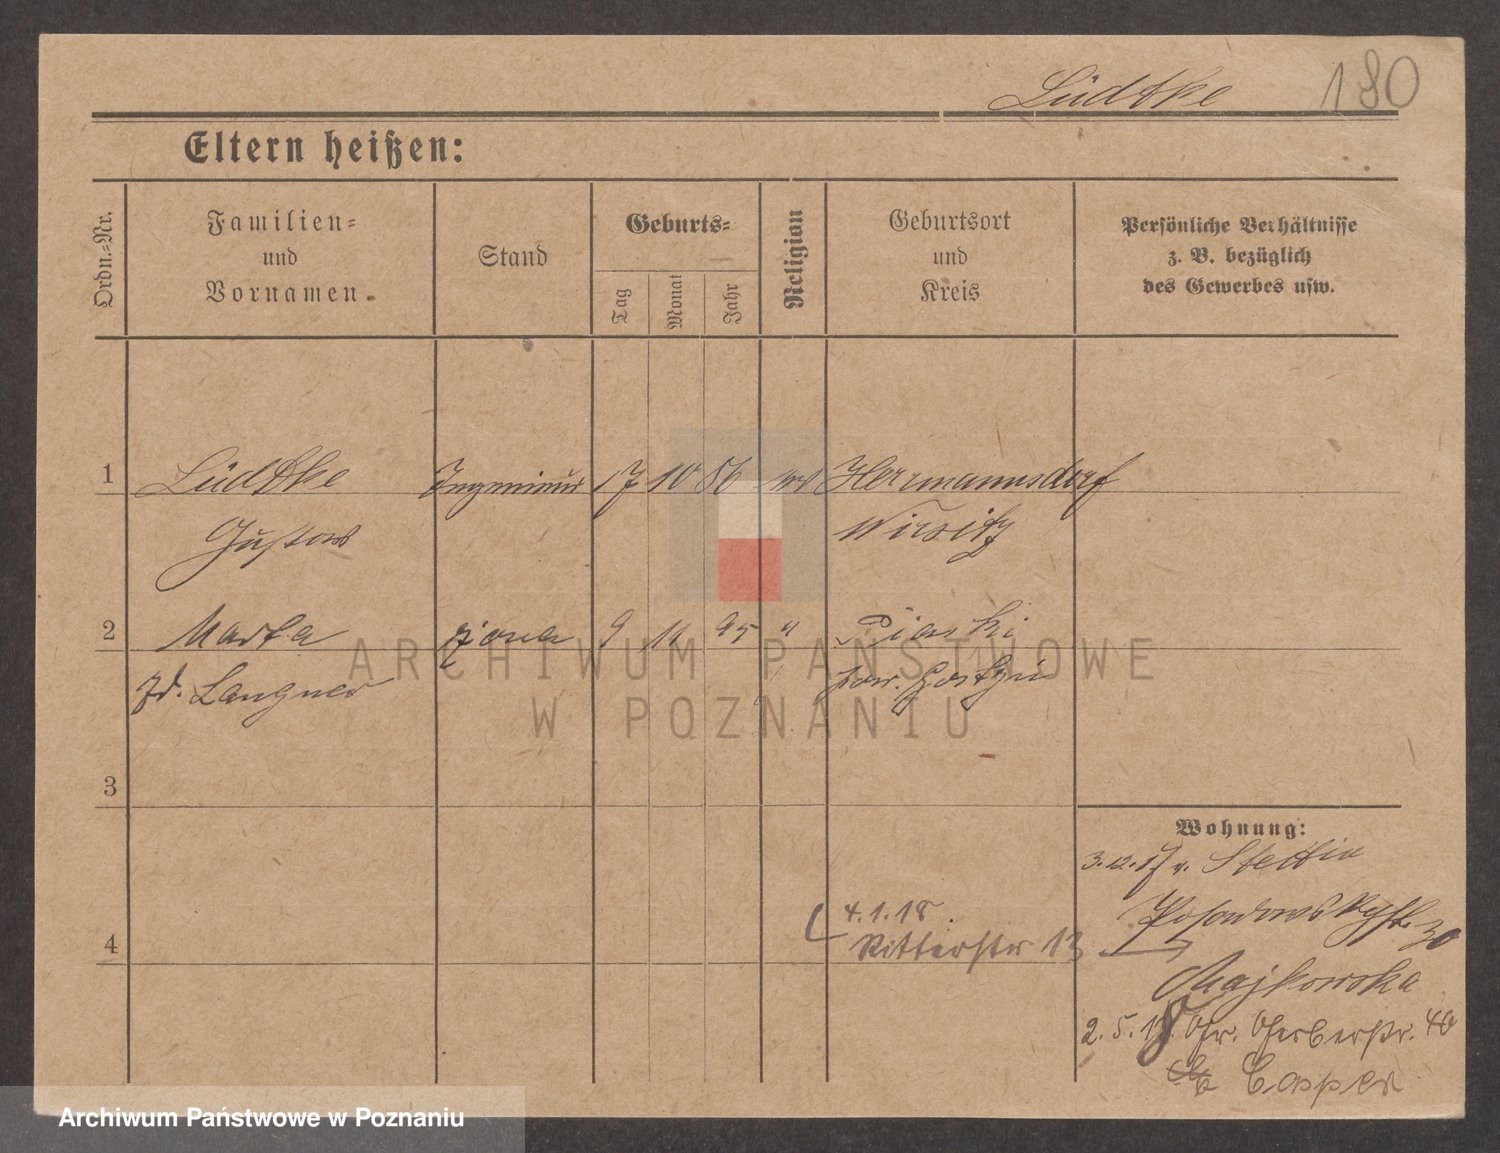 Lüdtke 180
Eltern heißen:
Ordn.-Nr.
Familien- und Vornamen.
Stand
Geburts-
Tag
Monat
Jahr
Religion
Geburtsort und Kreis
Persönliche Verhältnisse z. B. bezüglich des Gewerbes usw.
1 Lüdtke Ingenieur 17 10 86 Hermannsdorf
Gustav Wirsitz
2 Marta żona 9 11 95 " Piaski
zd. Langner pow. Gostyń
3
Wohnung:
3.12.17 v. Stettin
4.1.18. Posadowskystr. 30
4 Ritterstr 13
Majkowska
2.5.18. Gr. Gerberstr. 40
Casper
ARCHIWUM PAŃSTWOWE
W POZNANIU
Archiwum Państwowe w Poznaniu